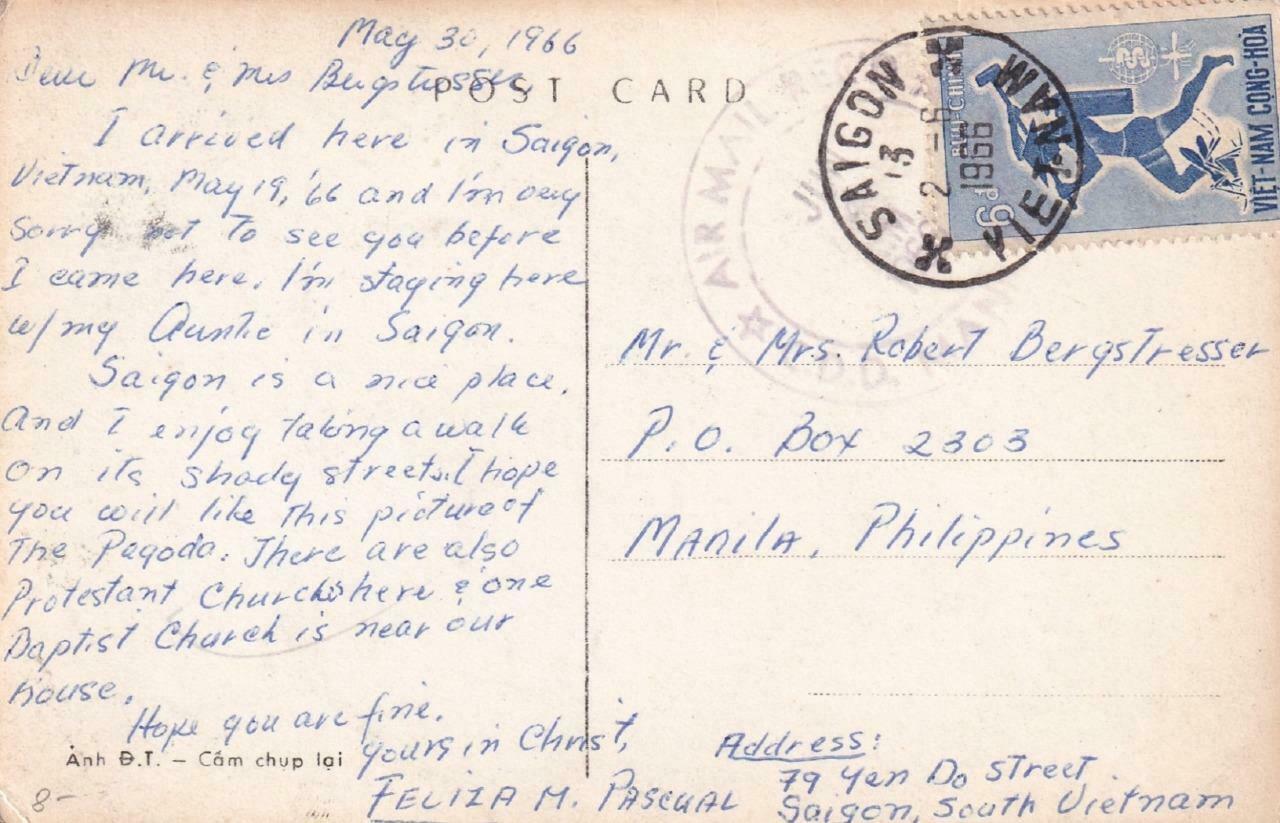 May 30, 1966
Dear Mr. & Mrs Bergstresser,
POST CARD
I arrived here in Saigon,
Vietnam, May 19, '66 and I'm very
Sorry not to see you before
I came here. I'm staying here
w/my Auntie in Saigon.
Saigon is a nice place.
And I enjoy taking a walk
on its shady streets. I hope
you will like this picture of
The Pagoda. There are also
Protestant Churchs here & one
Baptist Church is near our
house.
Hope you are fine.
yours in Christ,
FELIZA M. PASCUAL
Ảnh Đ.T. – Cấm chụp lại
8-
AIR MAIL
MAN
SAIGON
13
2-6
1966
VIET-NAM
BƯU-CHÍNH
6đ
VIỆT-NAM CỘNG-HÒA
Mr. & Mrs. Robert Bergstresser
P.O. Box 2303
MANilA, Philippines
Address:
79 Yen Do Street.
Saigon, South Vietnam